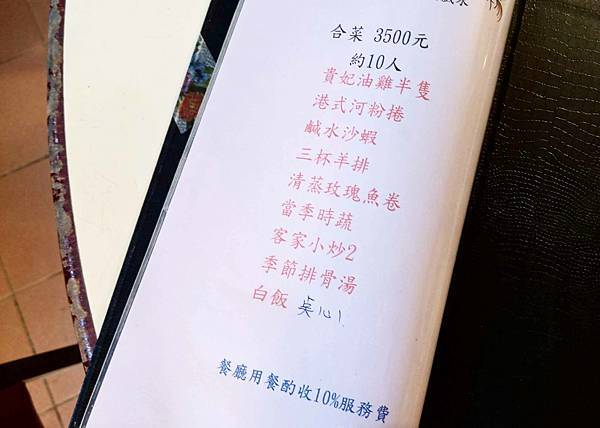 合菜 3500元
約10人
貴妃油雞半隻
港式河粉捲
鹹水沙蝦
三杯羊排
清蒸玫瑰魚卷
當季時蔬
客家小炒2
季節排骨湯
白飯
餐廳用餐酌收10%服務費